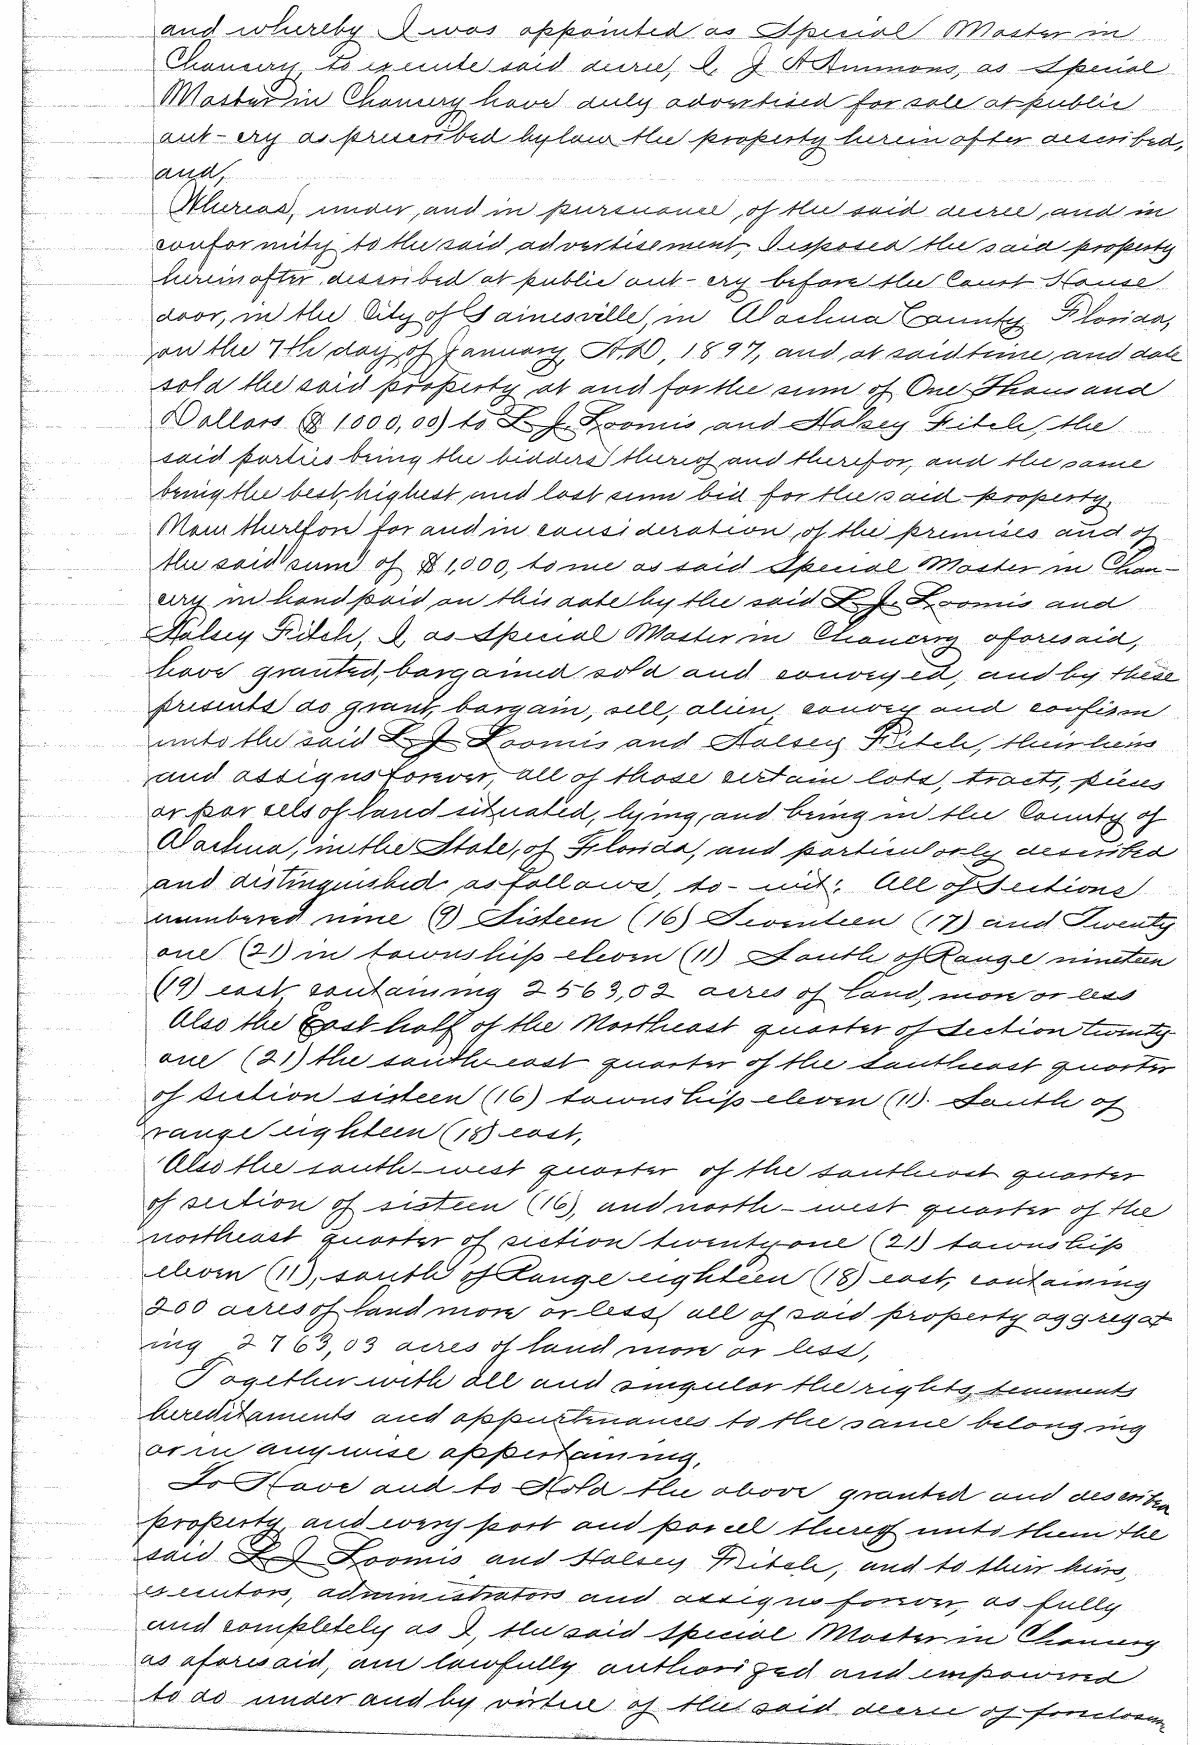 and whereby I was appointed as Special Master in
Chancery to execute said decree, I, J A Ammons, as Special
Master in Chancery have duly advertised for sale at public
out-cry as prescribed by law the property herein after described,
and,
Whereas, under, and in pursuance, of the said decree, and in
conformity to the said advertisement, I exposed the said property
hereinafter described at public out-cry before the Court House
door, in the City of Gainesville, in Alachua County Florida,
on the 7th day of January A.D, 1897, and at said time and date
sold the said property at and for the sum of One Thousand
Dollars ($1000,00) to L J. Loomis and Halsey Fitch, the
said parties being the bidders thereof and therefor, and the same
being the best, highest and last sum bid for the said property.
Now therefore for and in consideration, of the premises and of
the said sum of $1,000, to me as said Special Master in Chan-
cery in hand paid on this date by the said L J. Loomis and
Halsey Fitch, I, as Special Master in Chancery aforesaid,
have granted, bargained sold and conveyed, and by these
presents do grant, bargain, sell, alien, convey and confirm
unto the said L J Loomis and Halsey Fitch, their heirs
and assigns forever, all of those certain lots, tracts, pieces
or parcels of land situated, lying, and being in the County of
Alachua, in the State, of Florida, and particularly described
and distinguished as follows, to-wit: All of Sections
numbered nine (9) Sisteen (16) Seventeen (17) and Twenty
one (21) in township eleven (11) South of Range nineteen
(19) east containing 2563,02 acres of land, more or less
Also the East half of the Northeast quarter of Section twenty
one (21) the south-east quarter of the Southeast quarter
of Section sisteen (16) township eleven (11). South of
range eighteen (18) east,
Also the south-west quarter of the southeast quarter
of section of sisteen (16), and north-west quarter of the
northeast quarter of section twenty one (21) township
eleven (11), south of Range eighteen (18) east, containing
200 acres of land more or less, all of said property aggregat
ing 2763,03 acres of land more or less,
Together with all and singular the rights, tenements
hereditaments and appurtenances to the same belonging
or in anywise appertaining,
To Have and to Hold the above granted and described
property, and every part and parcel thereof unto them the
said L J Loomis and Halsey Fitch, and to their heirs,
executors, administrators and assigns forever, as fully
and completely as I, the said Special Master in Chancery
as aforesaid, am lawfully authorized and empowered
to do under and by virtue of the said decree of foreclosure